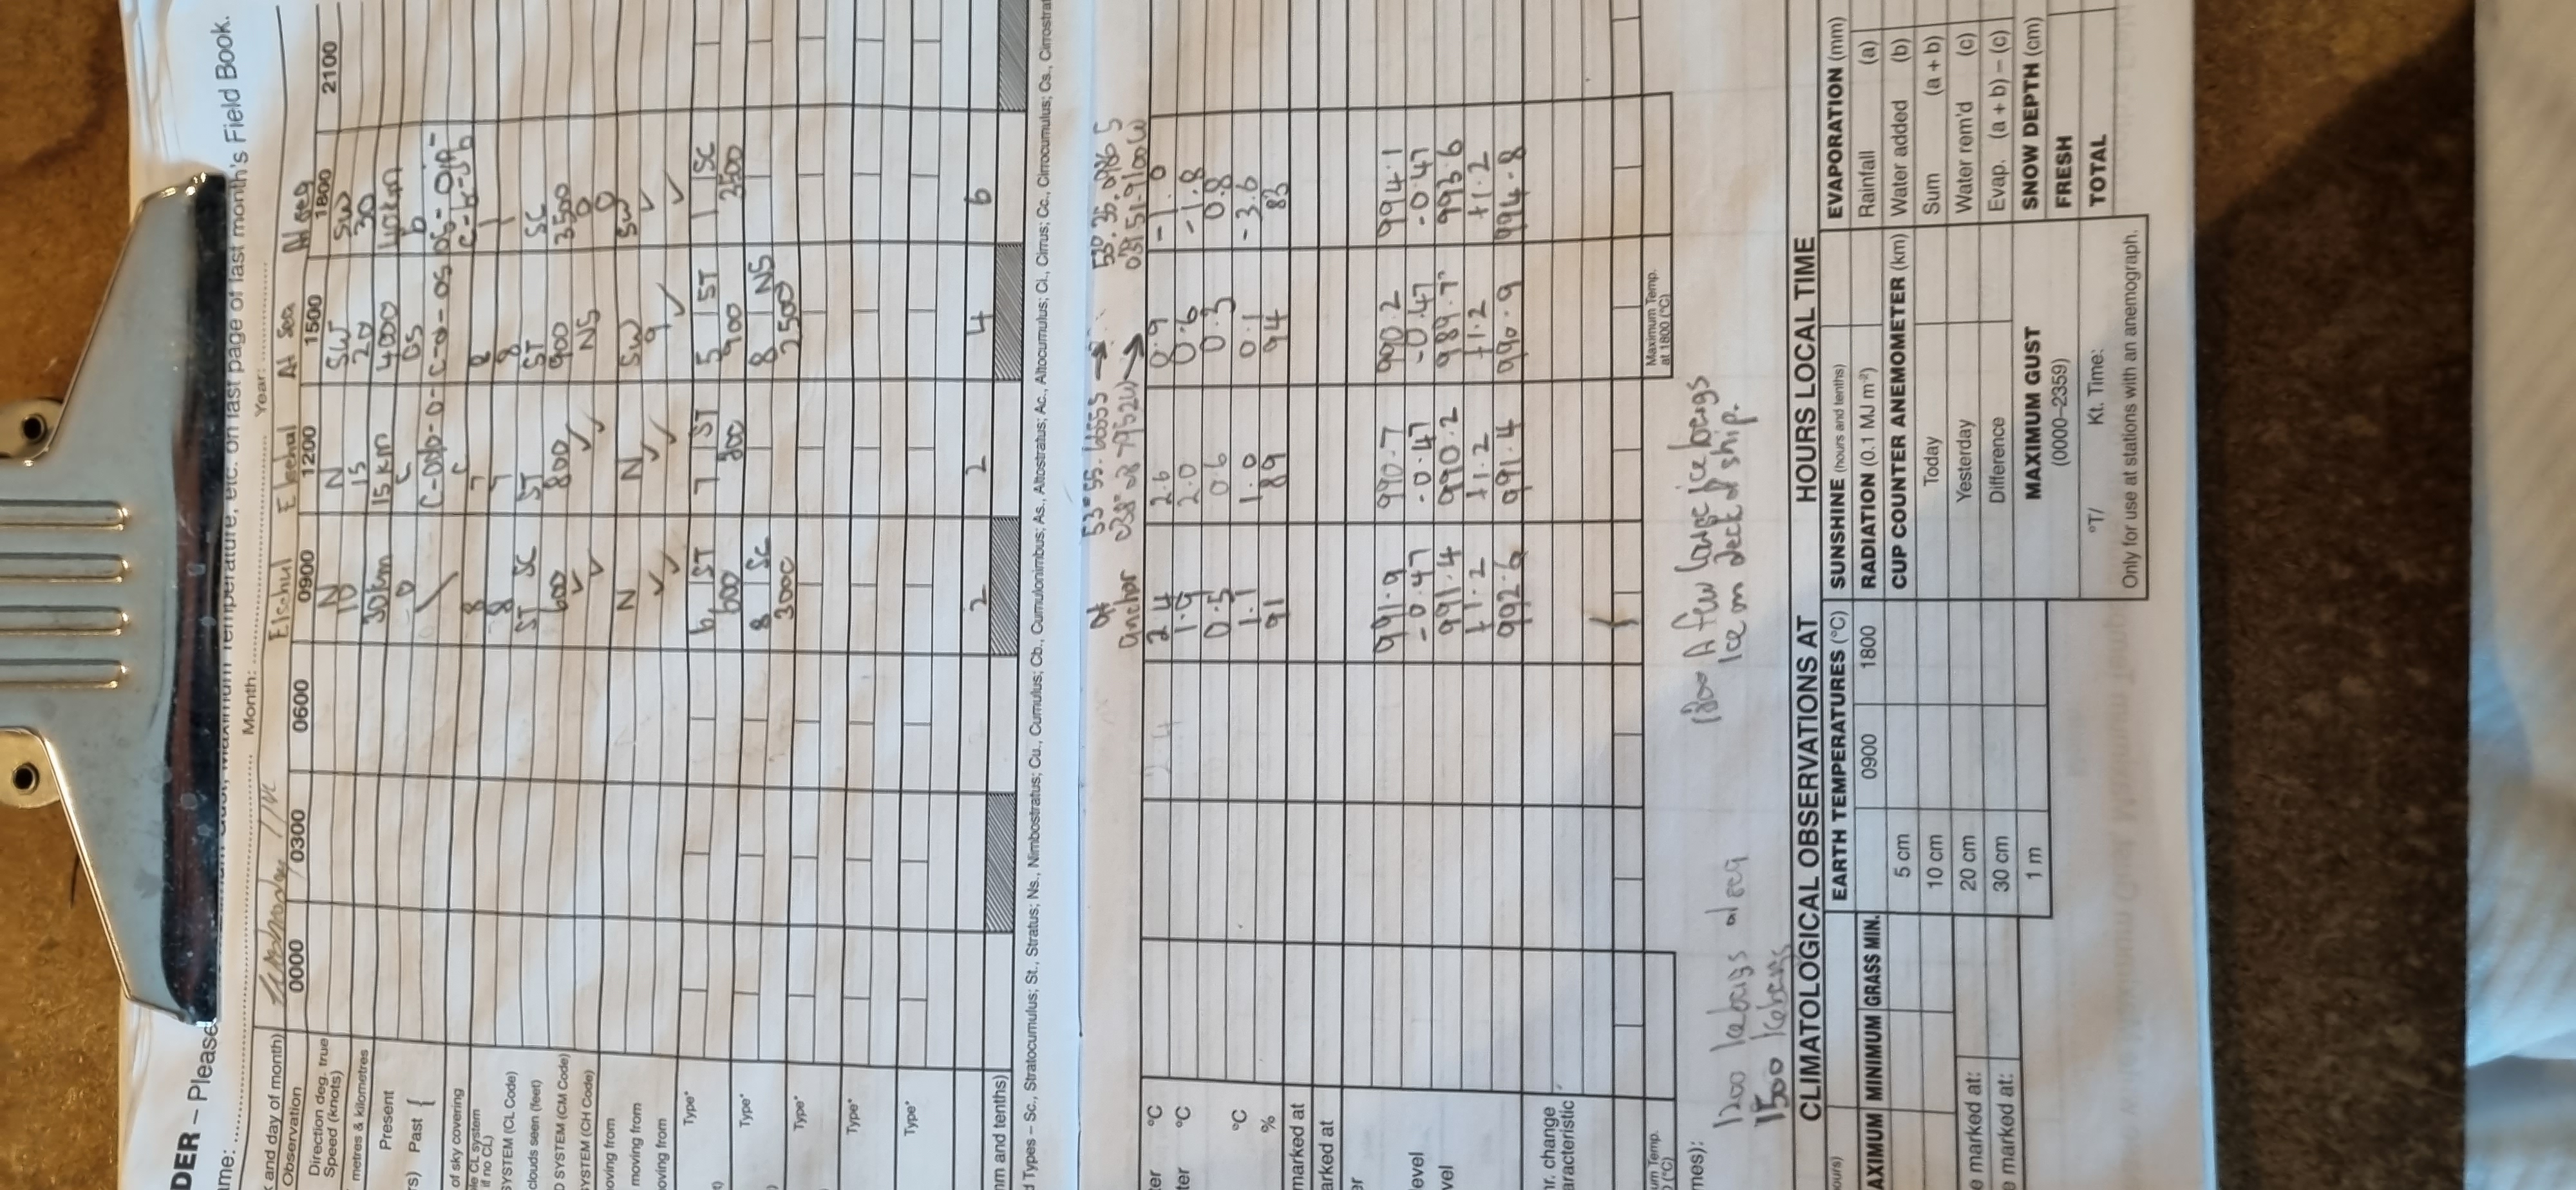 DER – Please
on last page of last month's Field Book.
ame:
Month:
Year:
and day of month)
Elsehul
Elsehul
At Sea
At Sea
Observation 0000 0300 0600 0900 1200 1500 1800 2100
Direction deg. true N N SW SW
Speed (knots) 10 15 20 30
metres & kilometres 30km 15km 4000 40km
Present o c os b
rs) Past {
of sky covering 8 7 8 1
le CL system
if no CL) 8 7 8 1
SYSTEM (CL Code) ST SC ST ST SC
clouds seen (feet) 600 800 900 3500
D SYSTEM (CM Code) ✓ ✓ NS 0
SYSTEM (CH Code) ✓ ✓ 0
oving from N N SW SW
moving from ✓ ✓ 9 ✓
oving from ✓ ✓ ✓ ✓
Type* 6 ST 7 ST 5 ST 1 SC
600 800 900 3500
Type* 8 SC 8 NS
3000 2500
Type*
Type*
Type*
mm and tenths) 2 2 4 6
d Types – Sc., Stratocumulus; St., Stratus; Ns., Nimbostratus; Cu., Cumulus; Cb., Cumulonimbus; As., Altostratus; Ac., Altocumulus; Ci., Cirrus; Cc., Cirrocumulus; Cs., Cirrostrat
at
anchor
ter °C 2.4 2.6 0.9 -1.0
ter °C 1.9 2.0 0.6 -1.8
0.5 0.6 0.3 0.8
°C 1.1 1.0 0.1 -3.6
% 91 89 94 83
marked at
arked at
er 991.9 990.7 990.2 994.1
-0.47 -0.47 -0.47 -0.47
level 991.4 990.2 989.7 993.6
+1.2 +1.2 +1.2 +1.2
vel 992.6 991.4 990.9 994.8
hr. change
aracteristic
um Temp.
(°C)
Maximum Temp.
at 1800 (°C)
mes):
1200 Icebergs at sea
1500 Icebergs
1800 A few large icebergs
Ice on deck of ship.
CLIMATOLOGICAL OBSERVATIONS AT
HOURS LOCAL TIME
ours)
AXIMUM MINIMUM GRASS MIN.
e marked at:
e marked at:
EARTH TEMPERATURES (°C)
0900 1800
5 cm
10 cm
20 cm
30 cm
1 m
SUNSHINE (hours and tenths)
RADIATION (0.1 MJ m⁻²)
CUP COUNTER ANEMOMETER (km)
Today
Yesterday
Difference
MAXIMUM GUST
(0000–2359)
°T/ Kt. Time:
Only for use at stations with an anemograph.
EVAPORATION (mm)
Rainfall (a)
Water added (b)
Sum (a + b)
Water rem'd (c)
Evap. (a + b) – (c)
SNOW DEPTH (cm)
FRESH
TOTAL